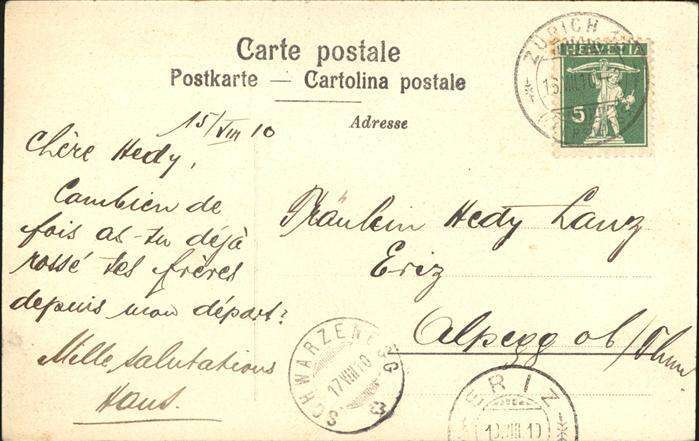 Carte postale
Postkarte — Cartolina postale
Adresse
ZÜRICH
16.VIII.10
HELVETIA
5
15/VIII 10
Chère Hedy,
Combien de
fois as-tu déjà
rossé tes frères
depuis mon départ?
Mille salutations
Hans.
Fräulein Hedy Lanz
Eriz
Alpegg ob/Thun
SCHWARZENEGG
17.VIII.10
ERIZ
18.VIII.10